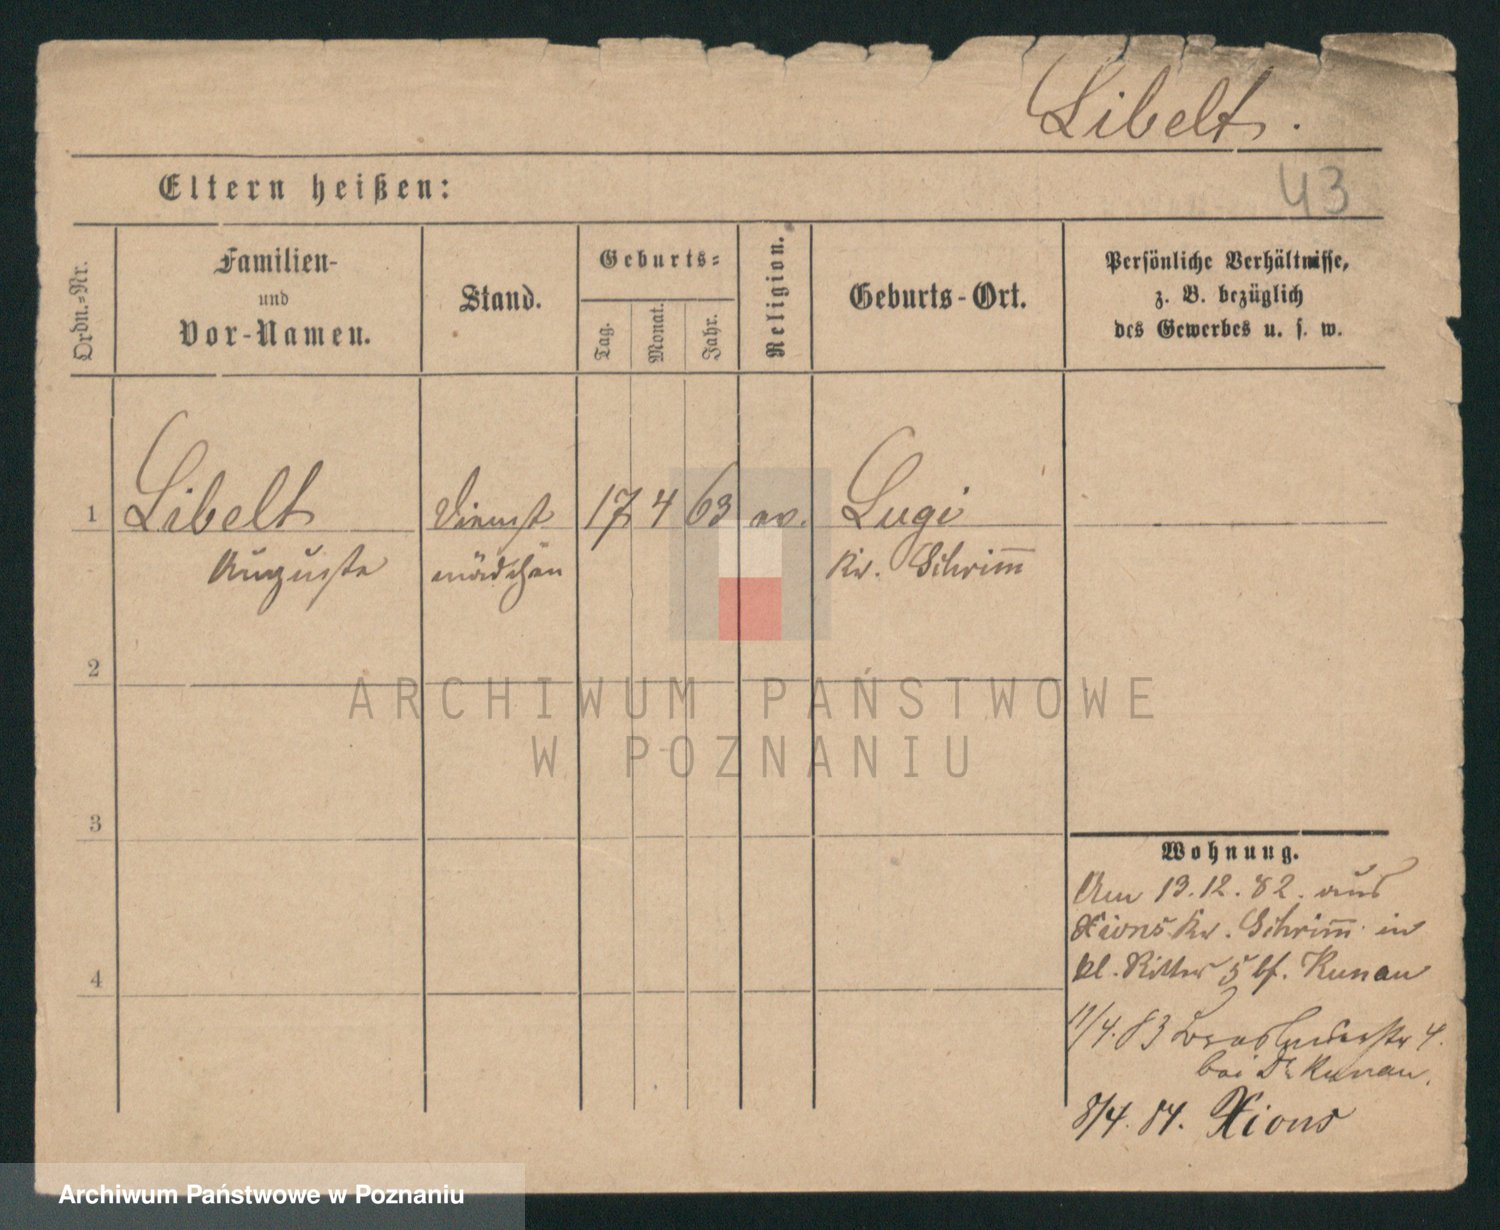 Libelt.
43
Eltern heißen:
Ordn.=Nr.
Familien-
und
Vor-Namen.
Stand.
Geburts=
Tag.
Monat.
Jahr.
Religion.
Geburts-Ort.
Persönliche Verhältnisse,
z. B. bezüglich
des Gewerbes u. s. w.
1
Libelt
Auguste
Dienst
mädchen
17 4 63 ev.
Lugi
Kr. Schrim̅
2
3
4
Wohnung.
Am 13.12.82. aus
Xions Kr. Schrim̅ in
kl. Ritter 5 bf. Kunau
11/4.83 4.
bei Dr Kunau.
8/4.84. Xions
ARCHIWUM PAŃSTWOWE
W POZNANIU
Archiwum Państwowe w Poznaniu